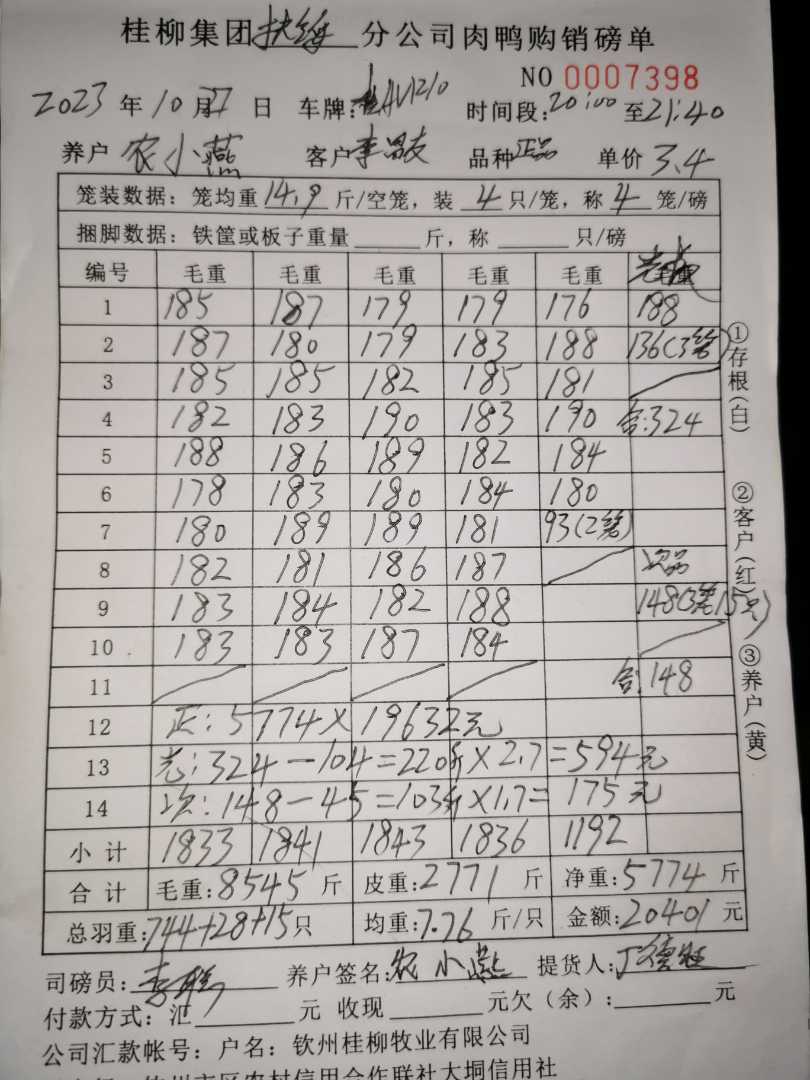 桂柳集团扶绥分公司肉鸭购销磅单
NO 0007398
2023年10月27日 车牌:AU1210 时间段:20:00至21:40
养户 农小燕 客户李昌友 品种正品 单价3.4
笼装数据:笼均重14.9斤/空笼,装4只/笼,称4笼/磅
捆脚数据:铁筐或板子重量 斤,称 只/磅
编号 毛重 毛重 毛重 毛重 毛重
1 185 187 179 179 176 188
2 187 180 179 183 188 136(3笼)
3 185 185 182 185 181
4 182 183 190 183 190 合:324
5 188 186 189 182 184
6 178 183 180 184 180
7 180 189 189 181 93(2笼)
8 182 181 186 187 次品
9 183 184 182 188 148(3笼15只)
10 183 183 187 184
11 合:148
12 正:5774× 19632元
13 光:324-104=220斤×2.7=594元
14 次:148-45=103斤×1.7=175元
小计 1833 1841 1843 1836 1192
合计 毛重:8545斤 皮重:2771斤 净重:5774斤
总羽重:744+28+15只 均重:7.76斤/只 金额:20401元
司磅员: 养户签名:农小燕 提货人:
付款方式:汇 元 收现 元欠(余): 元
公司汇款帐号:户名:钦州桂柳牧业有限公司
钦州市区农村信用合作联社大垌信用社
①存根(白)
②客户(红)
③养户(黄)